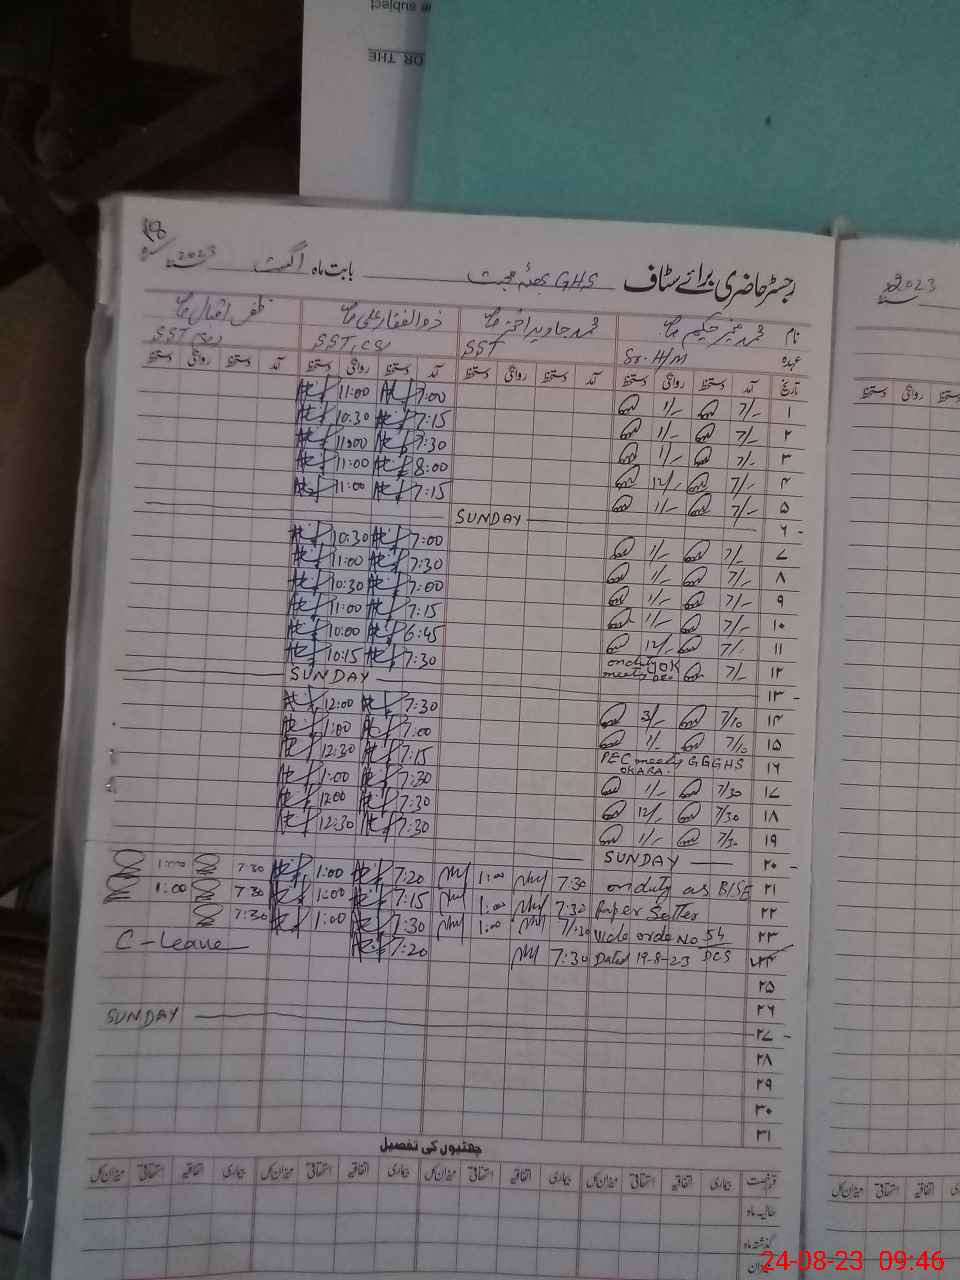 subject
OR THE
18
رجسٹر حاضری برائے سٹاف GHS بابت ماہ اگست سنہ 2023
2023
نام
عہدہ Sr. H/M SST SST, CS SST
تاریخ آمد دستخط روانگی دستخط آمد دستخط روانگی دستخط آمد دستخط روانگی دستخط آمد دستخط روانگی دستخط
۱ 7/- 1/- 7:00 11:00
۲ 7/- 1/- 7:15 10:30
۳ 7/- 1/- 7:30 11:00
۴ 7/- 12/- 8:00 11:00
۵ 7/- 1/- 7:15 11:00
۶ SUNDAY
۷ 7/- 1/- 7:00 10:30
۸ 7/- 1/- 7:30 11:00
۹ 7/- 1/- 7:00 10:30
۱۰ 7/- 1/- 7:15 11:00
۱۱ 7/- 12/- 6:45 10:00
۱۲ 7/- on duty 7:30 10:15
۱۳ SUNDAY
۱۴ 7/10 3/- 7:30 12:00
۱۵ 7/10 1/- 7:00 1:00
۱۶ PEC meeting GGGHS OKARA. 7:15 12:30
۱۷ 7/30 1/- 7:30 1:00
۱۸ 7/30 12/- 7:30 12:00
۱۹ 7/30 1/- 7:30 12:30
۲۰ SUNDAY
۲۱ on duty as BISE 7:30 1:00 7:20 1:00 7:30 1:00
۲۲ Paper Setter 7:30 1:00 7:15 1:00 7:30 1:00
۲۳ Vide order No 54 7:30 1:00 7:30 1:00 7:30
۲۴ Dated 19-8-23 DCS 7:30 7:20 C-Leave
۲۵
۲۶
۲۷ SUNDAY
۲۸
۲۹
۳۰
۳۱
چھٹیوں کی تفصیل
قسم رخصت بیماری اتفاقیہ استحقاقی میزان کل بیماری اتفاقیہ استحقاقی میزان کل بیماری اتفاقیہ استحقاقی میزان کل بیماری اتفاقیہ استحقاقی میزان کل
حالیہ ماہ
گذشتہ ماہ
میزان
24-08-23 09:46